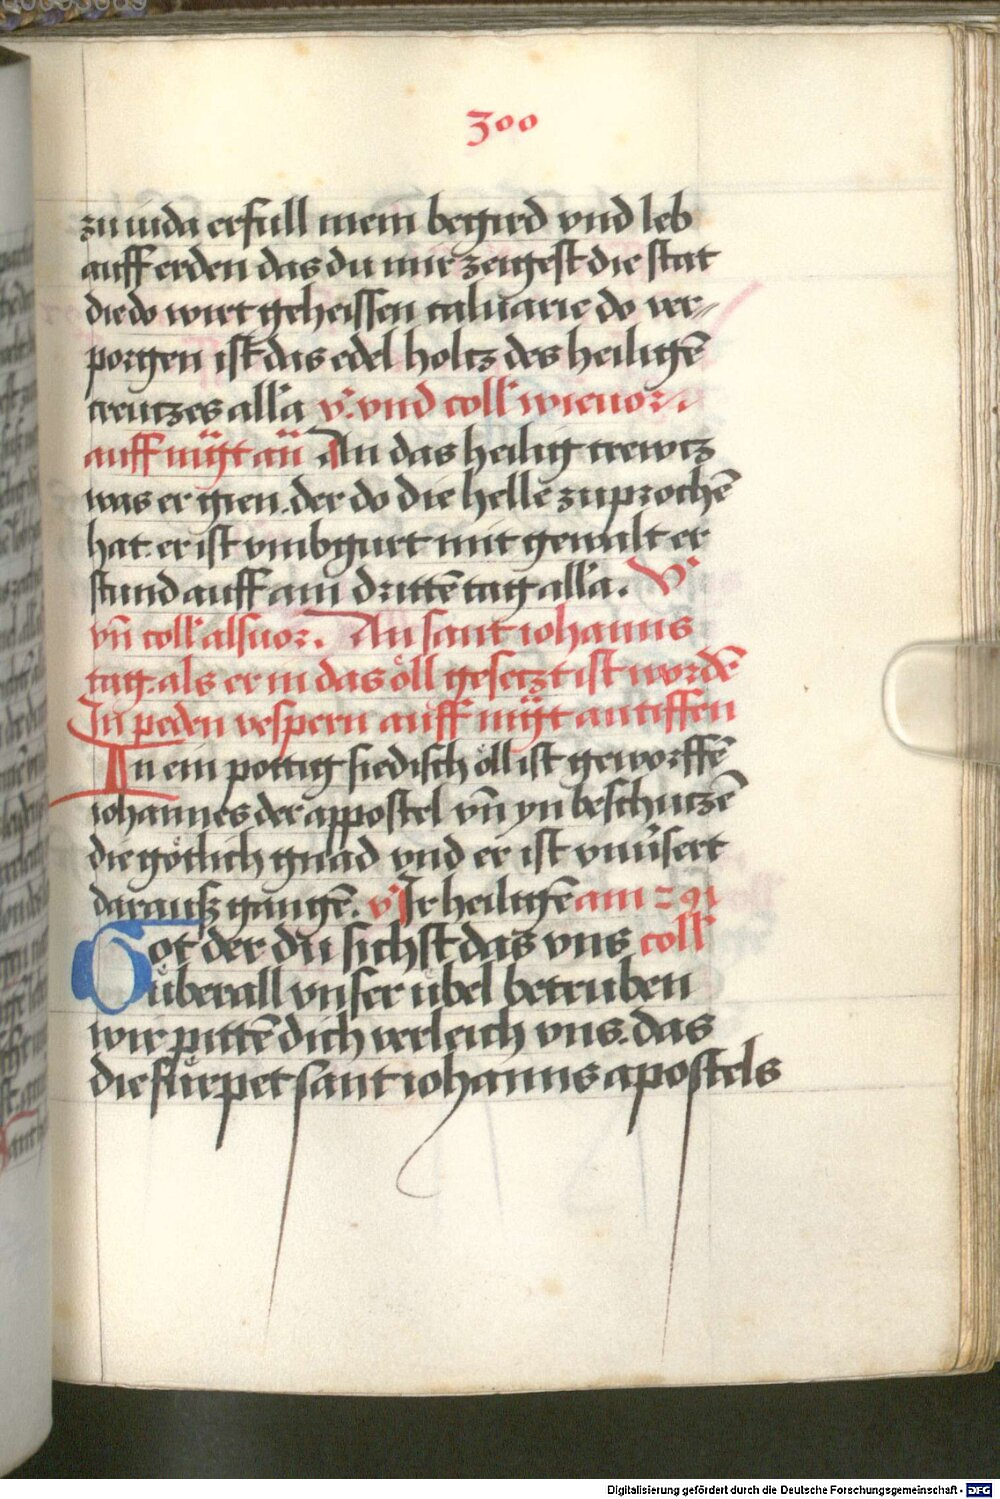 300
zu iuda erfull mein begird vnd leb
auff erden das du mir zeigest die stat
die do wirt geheissen caluarie do ver⸗
porgen ist das edel holtz des heiligē
creutzes all'a v'. vnd coll' wie uor.
auff mgt̄ an̄ An das heilig crewtz
was er gien. der do die helle zuprochē
hat. er ist vmbgurt mit gewalt er
stund auff am drittē tag all'a. V'
vn̄ coll' als uor. An sant iohanns
tag. als er in das öll gesetzt ist wordē
In peden vespern auff mgt̄ antiffen
In ein pottig siedisch öll ist geworffē
iohannes der appostel vn̄ yn beschutzē
die götlich gnad vnd er ist vnuersert
darausz gangē. v' Ir heiligē am
Got der du sichst das vns coll'
überall vnser übel betruben
wir pittē dich verleich vns. das
die fürpet sant iohanns apostels
Digitalisierung gefördert durch die Deutsche Forschungsgemeinschaft - DFG